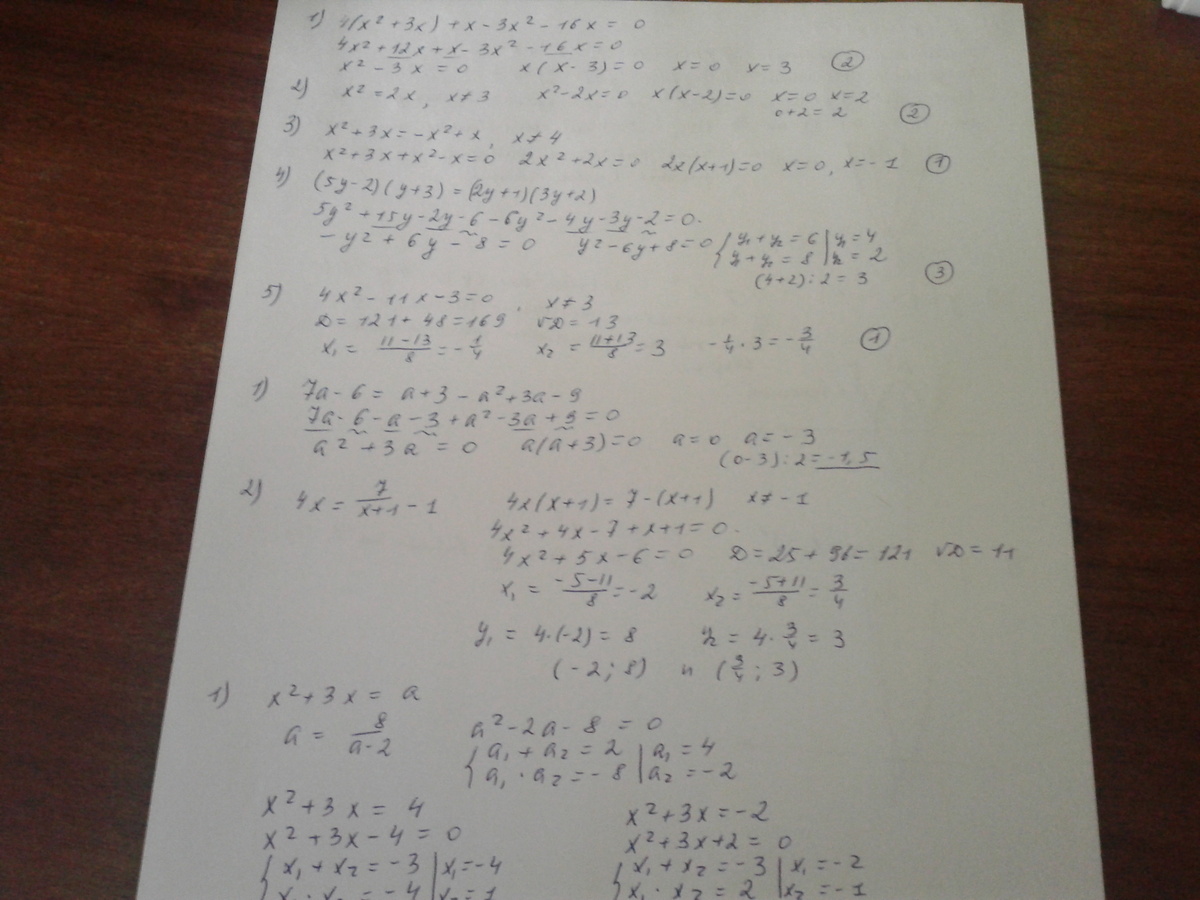 1) 4(x² + 3x) + x - 3x² - 16x = 0
4x² + 12x + x - 3x² - 16x = 0
x² - 3x = 0 x(x - 3) = 0 x = 0 x = 3 ②
2) x² = 2x, x ≠ 3 x² - 2x = 0 x(x - 2) = 0 x = 0 x = 2
0 + 2 = 2 ②
3) x² + 3x = -x² + x, x ≠ 4
x² + 3x + x² - x = 0 2x² + 2x = 0 2x(x+1) = 0 x = 0, x = -1 ①
4) (5y - 2)(y + 3) = (2y + 1)(3y + 2)
5y² + 15y - 2y - 6 - 6y² - 4y - 3y - 2 = 0.
-y² + 6y - 8 = 0 y² - 6y + 8 = 0 { y₁ + y₂ = 6 | y₁ = 4
y₁ + y₂ = 8 | y₂ = 2
(4+2) : 2 = 3 ③
5) 4x² - 11x - 3 = 0, x ≠ 3
D = 121 + 48 = 169 √D = 13
x₁ = (11 - 13)/8 = -1/4 x₂ = (11 + 13)/8 = 3 -1/4 · 3 = -3/4 ①
1) 7a - 6 = a + 3 - a² + 3a - 9
7a - 6 - a - 3 + a² - 3a + 9 = 0
a² + 3a = 0 a(a + 3) = 0 a = 0 a = -3
(0 - 3) : 2 = -1,5
2) 4x = 7/(x+1) - 1 4x(x+1) = 7 - (x+1) x ≠ -1
4x² + 4x - 7 + x + 1 = 0.
4x² + 5x - 6 = 0 D = 25 + 96 = 121 √D = 11
x₁ = (-5-11)/8 = -2 x₂ = (-5+11)/8 = 3/4
y₁ = 4·(-2) = 8 y₂ = 4 · 3/4 = 3
(-2; 8) и (3/4; 3)
1) x² + 3x = a
a = 8/(a-2) a² - 2a - 8 = 0
{ a₁ + a₂ = 2 | a₁ = 4
a₁ · a₂ = -8 | a₂ = -2
x² + 3x = 4 x² + 3x = -2
x² + 3x - 4 = 0 x² + 3x + 2 = 0
{ x₁ + x₂ = -3 | x₁ = -4 { x₁ + x₂ = -3 | x₁ = -2
x₁ · x₂ = -4 | x₂ = 1 x₁ · x₂ = 2 | x₂ = -1